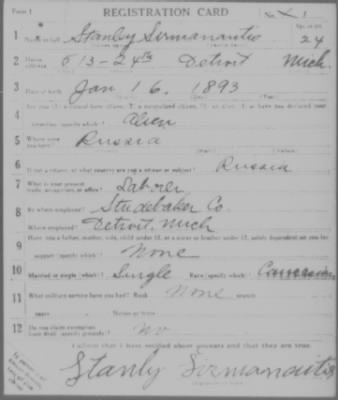 Form 1 REGISTRATION CARD No. 1
1 Name in full Stanly Sirmanautis Age, in yrs. 24
2 Home address 613-24th Detroit Mich.
3 Date of birth Jan 16. 1893
4 Are you (1) a natural born citizen, (2) a naturalized citizen, (3) an alien, (4) or have you declared your
intention (specify which)? Alien
5 Where were you born? Russia
6 If not a citizen, of what country are you a citizen or subject? Russia
7 What is your present trade, occupation, or office? Laborer
8 By whom employed? Studebaker Co.
Where employed? Detroit, Mich
9 Have you a father, mother, wife, child under 12, or a sister or brother under 12, solely dependent on you for
support (specify which)? None
10 Married or single (which)? Single Race (specify which)? Caucasian
11 What military service have you had? Rank None branch
years Nation or State
12 Do you claim exemption from draft (specify grounds)? No
I affirm that I have verified above answers and that they are true.
Stanly Sirmanautis